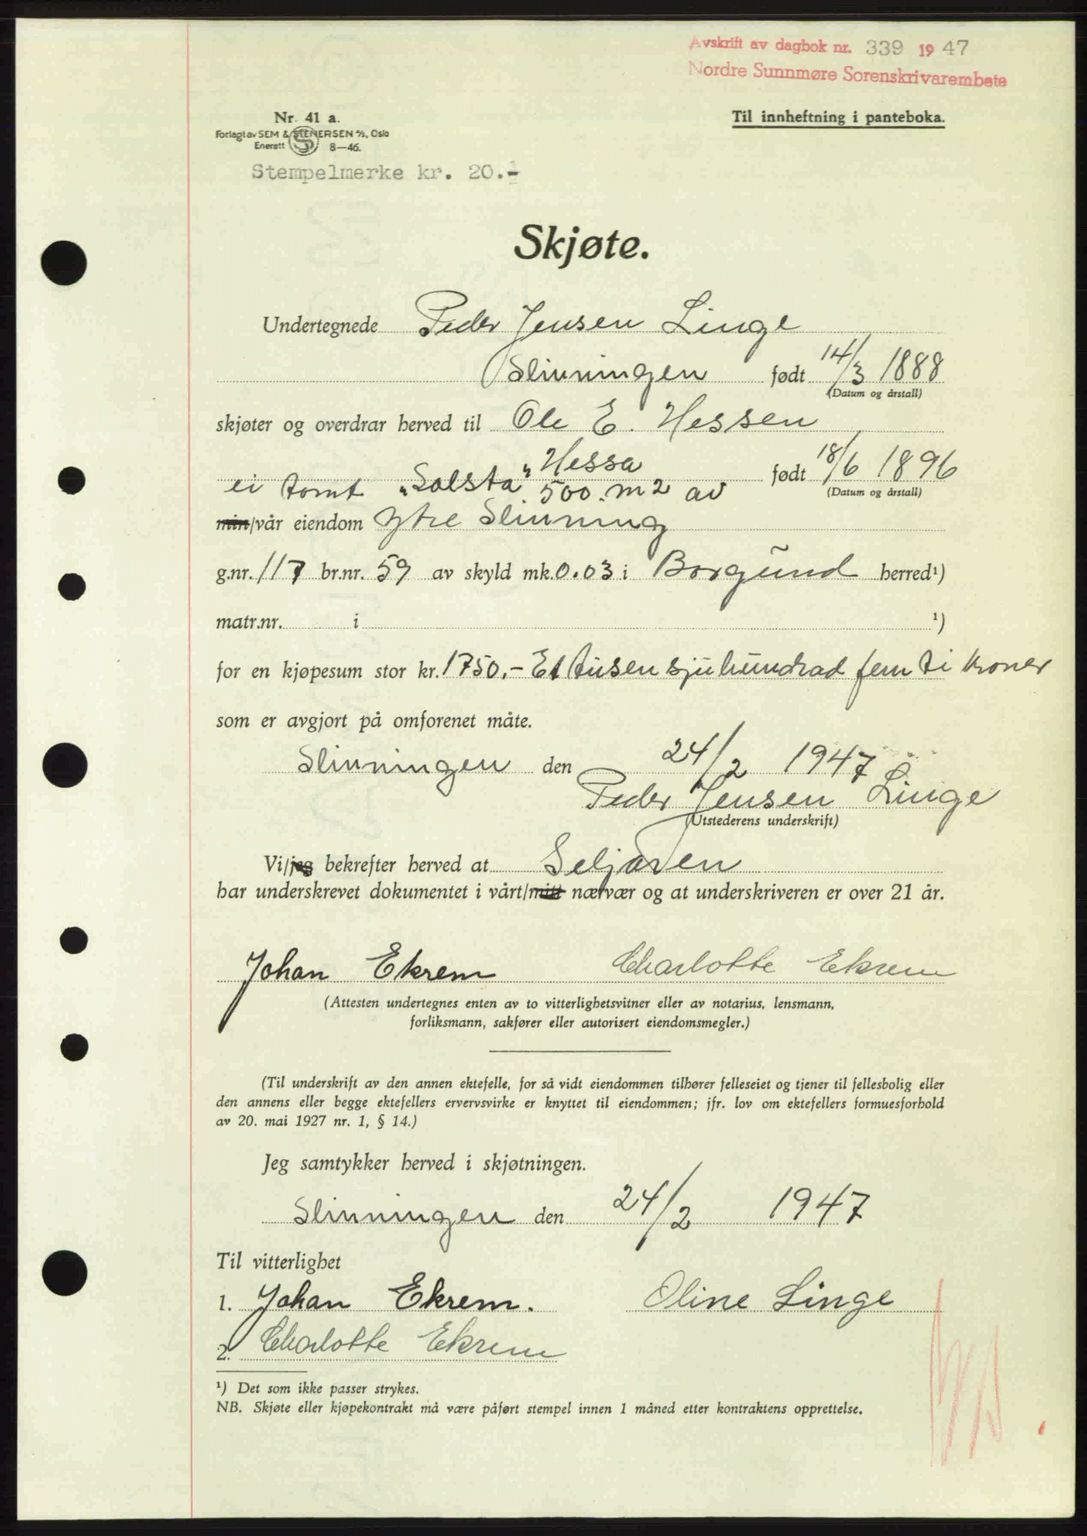 Avskrift av dagbok nr. 339 1947
Nordre Sunnmøre Sorenskrivarembete
Nr. 41 a.
Til innheftning i panteboka.
Forlagt av SEM & STENERSEN A/S, Oslo
Enerett 8—46.
Stempelmerke kr. 20.-
Skjøte.
Undertegnede Peder Jensen Linge
Slinningen født 14/3 1888
(Datum og årstall)
skjøter og overdrar herved til Ole E. Hessen
Hessa født 18/6 1896
(Datum og årstall)
ei tomt „Solsta" 500 m2 av
min/vår eiendom Ytre Slinning
g.nr. 117 br.nr. 59 av skyld mk. 0.03 i Borgund herred¹)
matr.nr. i ¹)
for en kjøpesum stor kr. 1750,- Et tusen sjuhundrad femti kroner
som er avgjort på omforenet måte.
Slinningen den 24/2 1947
Peder Jensen Linge
(Utstederens underskrift)
Vi/jeg bekrefter herved at Seljaren
har underskrevet dokumentet i vårt/mitt nærvær og at underskriveren er over 21 år.
Johan Ekrem Charlotte Ekrem
(Attesten undertegnes enten av to vitterlighetsvitner eller av notarius, lensmann,
forliksmann, sakfører eller autorisert eiendomsmegler.)
(Til underskrift av den annen ektefelle, for så vidt eiendommen tilhører felleseiet og tjener til fellesbolig eller
den annens eller begge ektefellers ervervsvirke er knyttet til eiendommen; jfr. lov om ektefellers formuesforhold
av 20. mai 1927 nr. 1, § 14.)
Jeg samtykker herved i skjøtningen.
Slinningen den 24/2 1947
Til vitterlighet
1. Johan Ekrem. Oline Linge
2. Charlotte Ekrem
¹) Det som ikke passer strykes.
NB. Skjøte eller kjøpekontrakt må være påført stempel innen 1 måned etter kontraktens opprettelse.